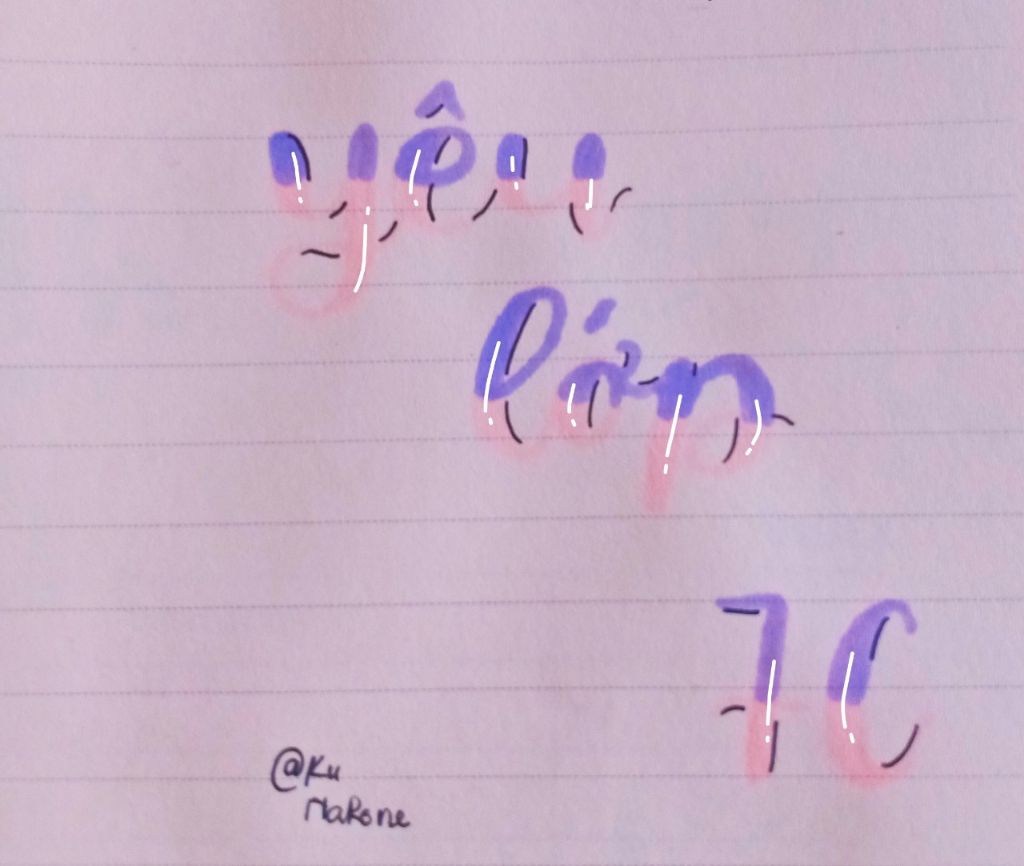 yêu
lớp
7C
@Ku
MaRone